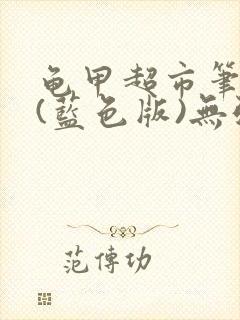 龟甲超市筆
(藍色版)無
范傳功